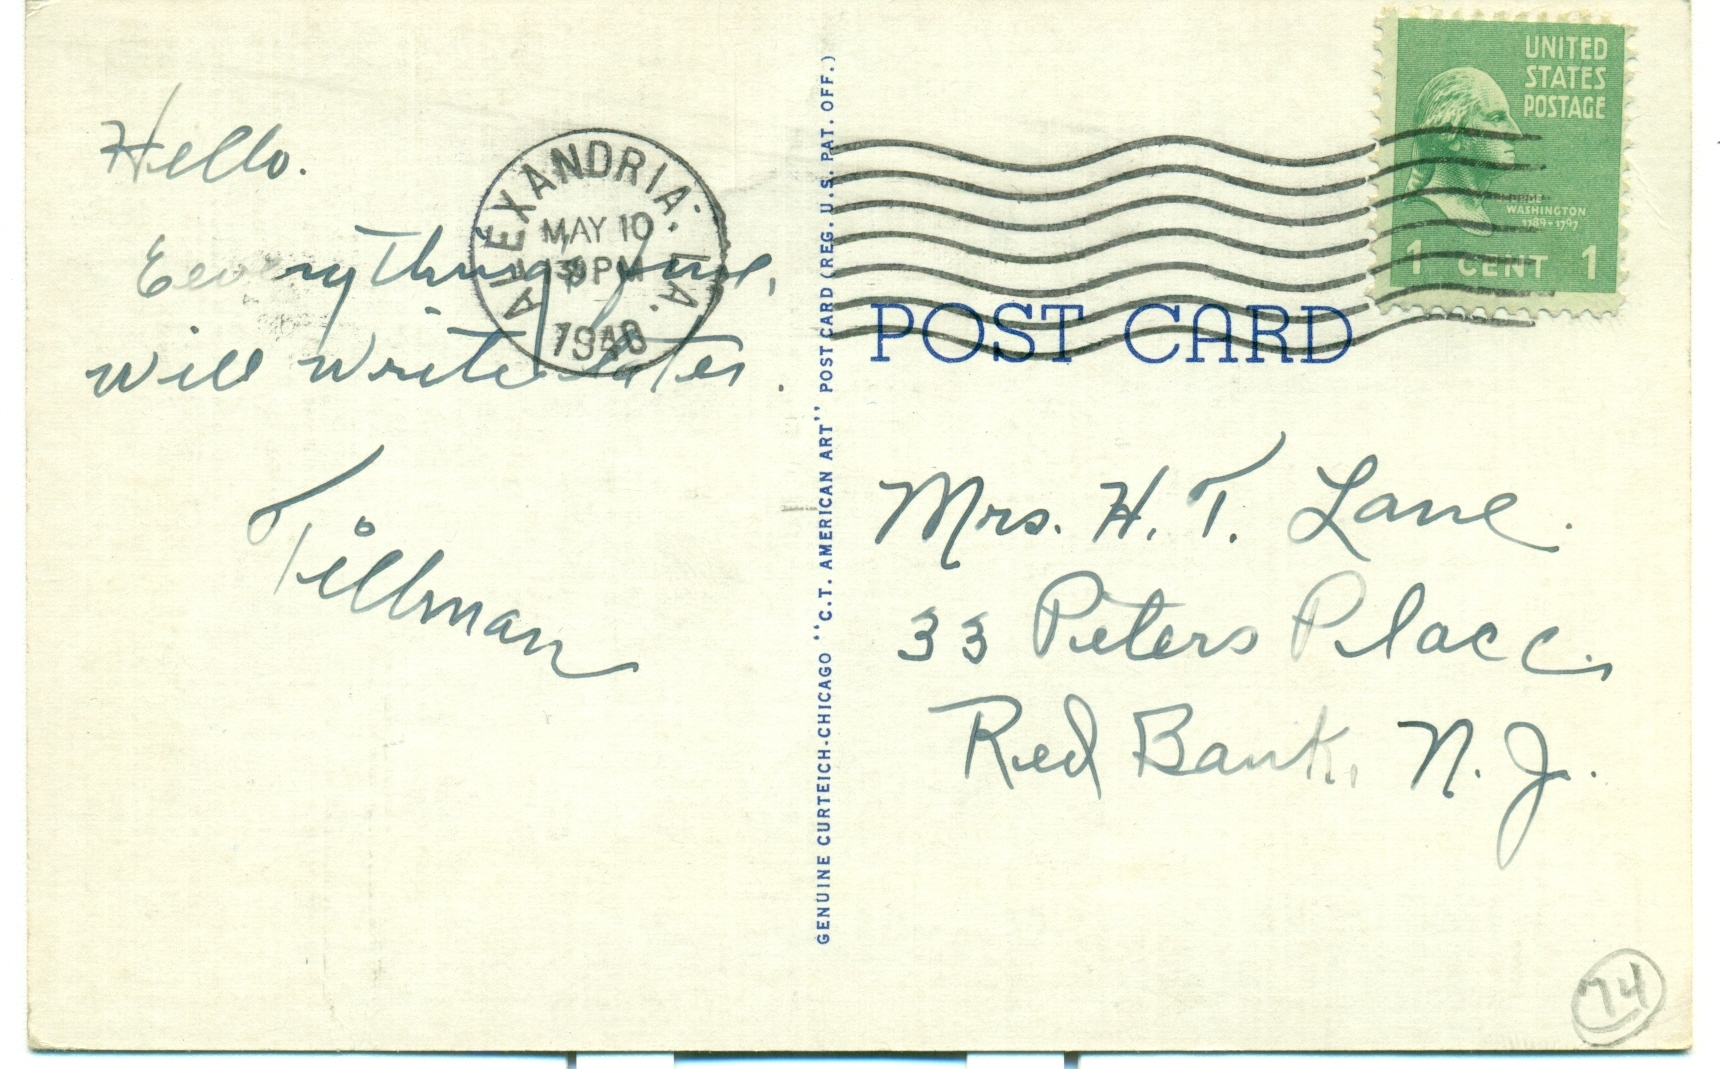 Hello.
Eeverything fine,
will write later.
Tillman
ALEXANDRIA, LA.
MAY 10
PM
GENUINE CURTEICH-CHICAGO "C.T. AMERICAN ART" POST CARD (REG. U.S. PAT. OFF.)
UNITED
STATES
POSTAGE
WASHINGTON
1789-1797
1 CENT 1
POST CARD
Mrs. H. T. Lane.
33 Peters Place,
Red Bank, N. J.
74